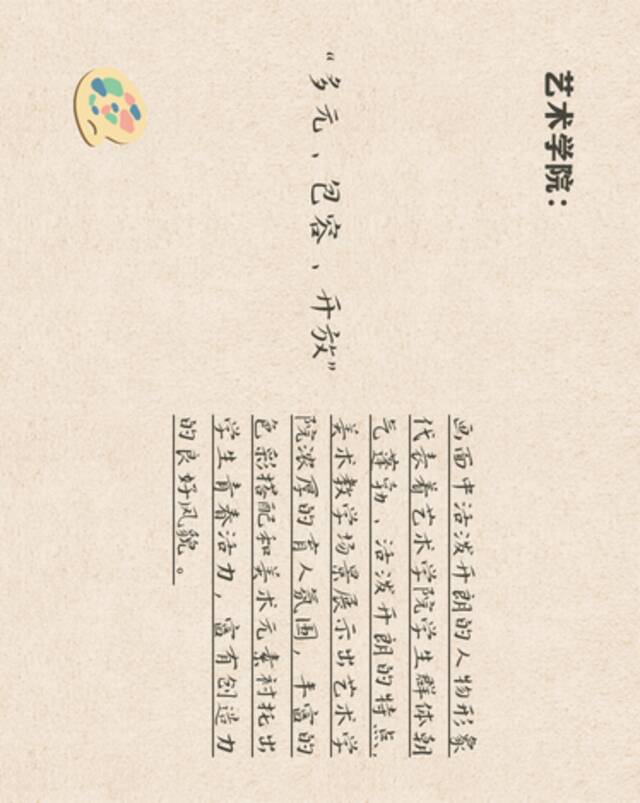 艺术学院：
“多元、包容、开放”
画面中活泼开朗的人物形象
代表着艺术学院学生群体朝
气蓬勃、活泼开朗的特点，
美术教学场景展示出艺术学
院浓厚的育人氛围，丰富的
色彩搭配和美术元素衬托出
学生青春活力，富有创造力
的良好风貌。